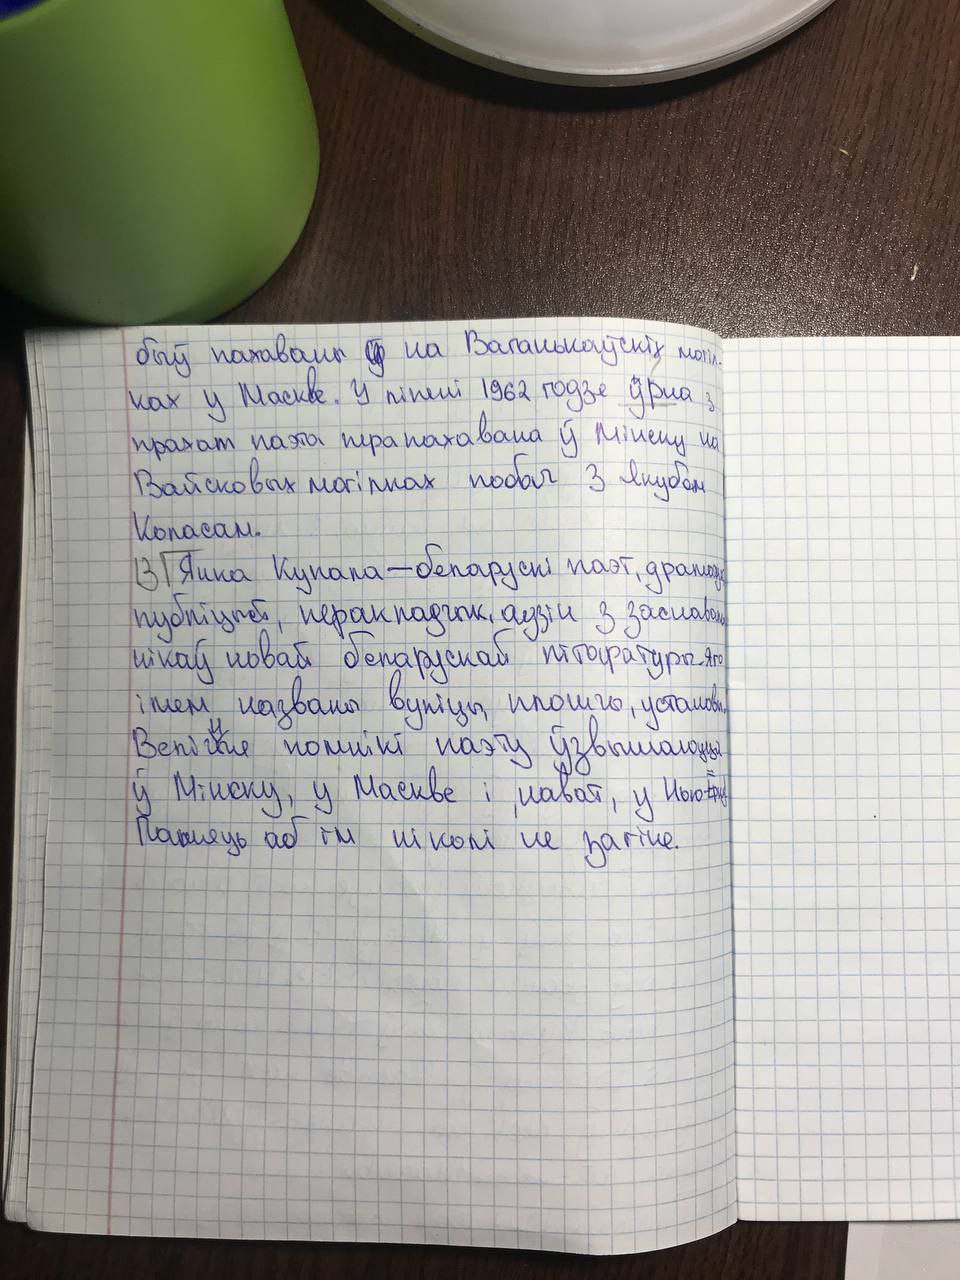 быў пахаваны на Ваганькаўскіх могіл-
ках у Маскве. У ліпені 1962 годзе ўрна з
прахам паэта перапахавана ў Мінску на
Вайсковых могілках побач з Якубам
Коласам.
3) Янка Купала – беларускі паэт, драматург
публіцыст, перакладчык, адзін з заснаваль
нікаў новай беларускай літаратуры. Яго
імем названы вуліцы, плошчы, установы.
Велічныя помнікі паэту ўзвышаюцца
ў Мінску, у Маскве і, нават, у Нью-
Памяць аб ім ніколі не загіне.